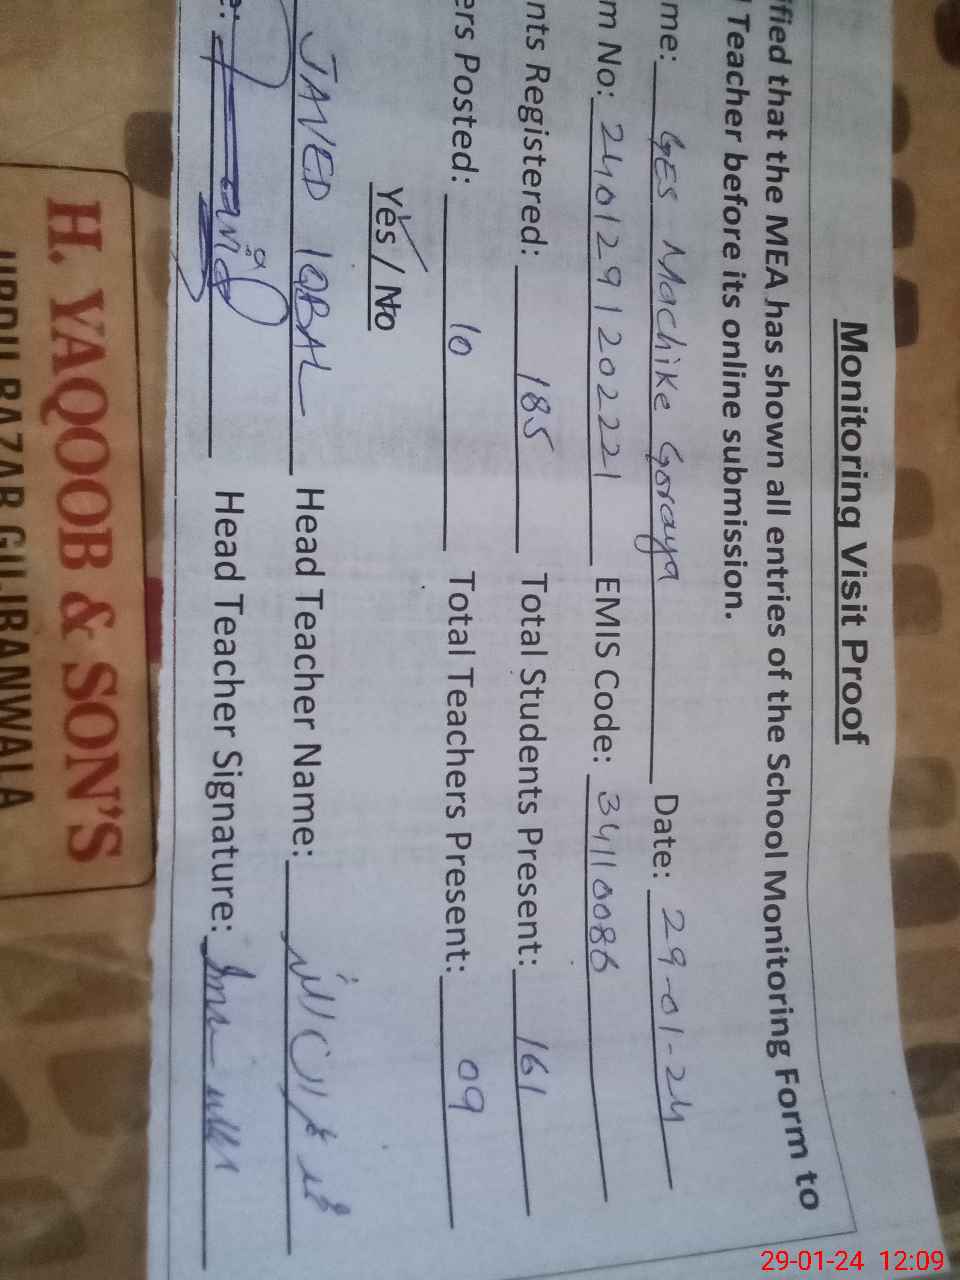 Monitoring Visit Proof
ified that the MEA has shown all entries of the School Monitoring Form to
Teacher before its online submission.
me: GES Machike Goraya Date: 29-01-24
m No: 2401291220221 EMIS Code: 34110086
nts Registered: 185 Total Students Present: 161
ers Posted: 10 Total Teachers Present: 09
Yes / No
JAVED IQBAL Head Teacher Name:
e: Head Teacher Signature:
H. YAQOOB & SON'S
URDU BAZAR GUJRANWALA
29-01-24 12:09